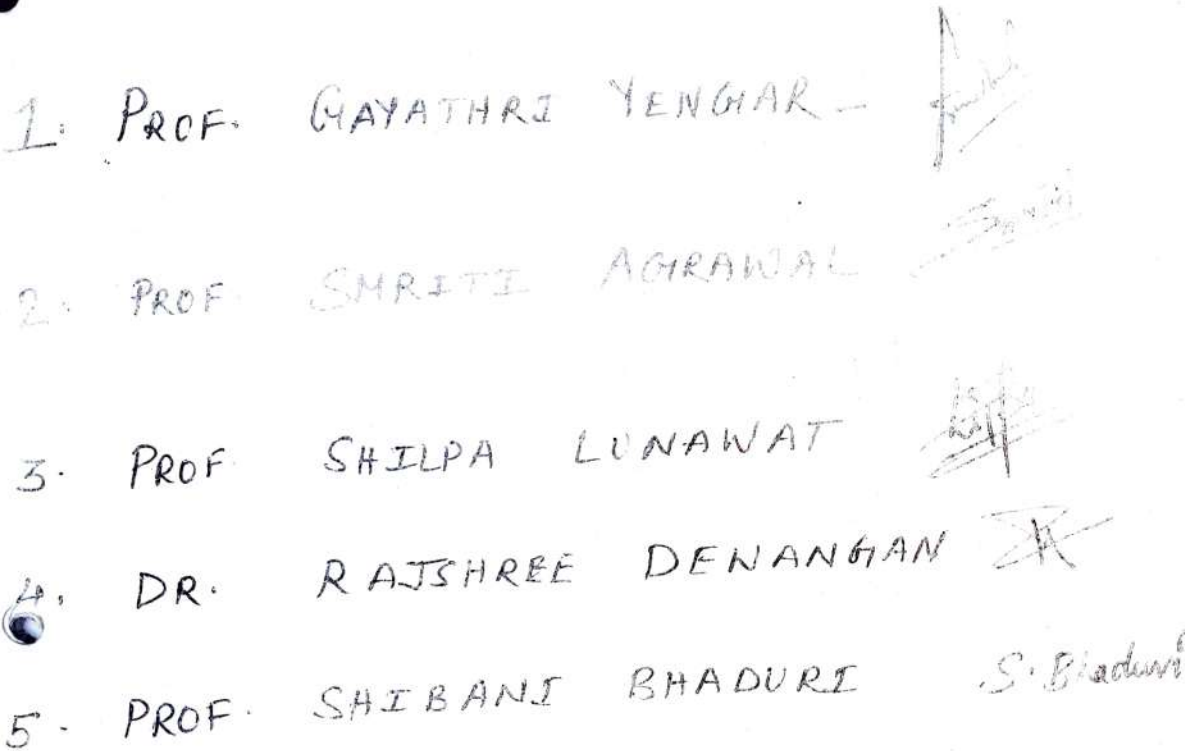 1. PROF. GAYATHRI YENGAR -
2. PROF. SMRITI AGRAWAL
3. PROF SHILPA LUNAWAT
4. DR. RAJSHREE DEWANGAN
5. PROF. SHIBANI BHADURI S. Bhaduri